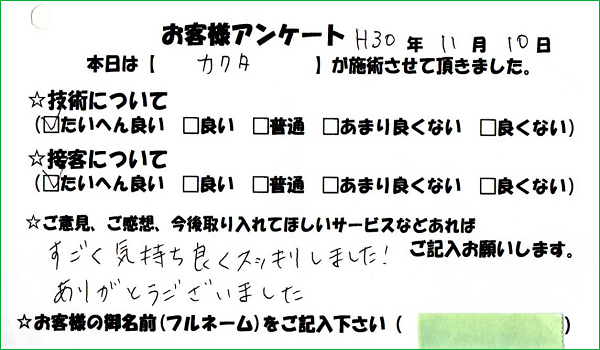 お客様アンケート H30年 11月 10日
本日は【 カクタ 】が施術させて頂きました。
☆技術について
(☑たいへん良い □良い □普通 □あまり良くない □良くない)
☆接客について
(☑たいへん良い □良い □普通 □あまり良くない □良くない)
☆ご意見、ご感想、今後取り入れてほしいサービスなどあれば
ご記入お願いします。
すごく気持ち良くスッキリしました!
ありがとうございました
☆お客様の御名前(フルネーム)をご記入下さい( )